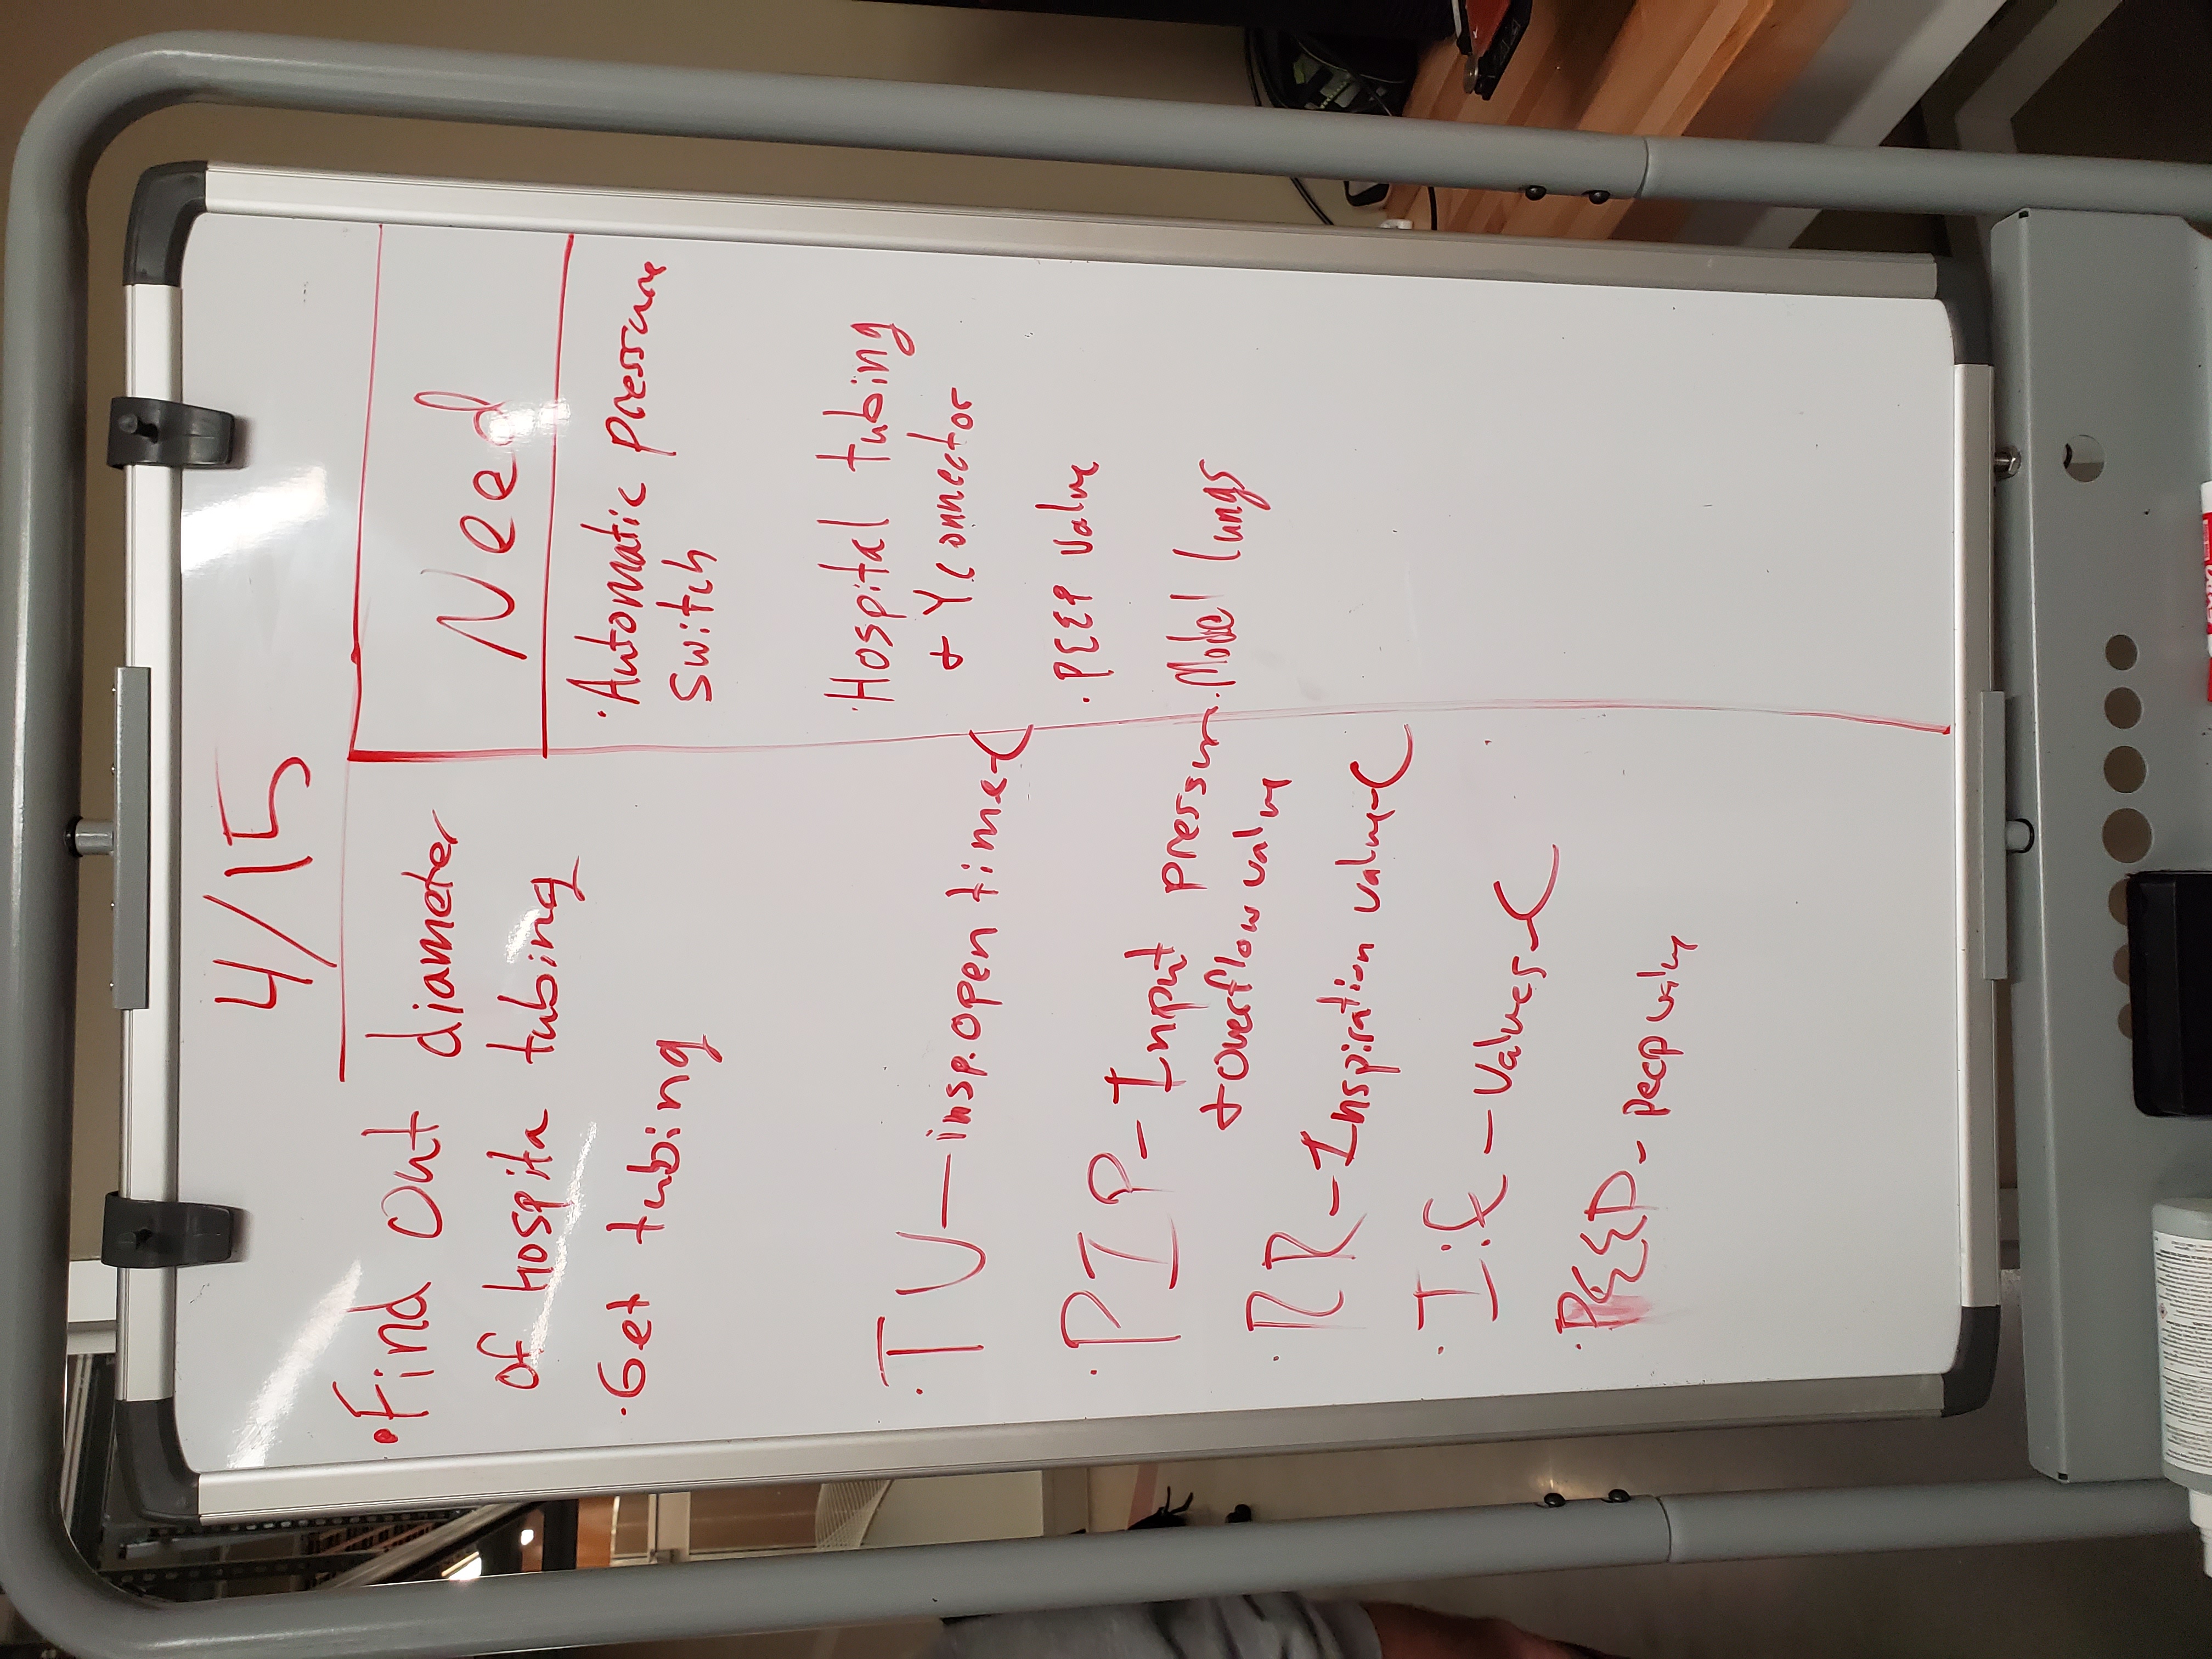 4/15
•Find Out diameter
of hospita tubing
•Get tubing
•TV—insp.open time-C
•PIP-Input pressure
+ overflow valve
•RR-Inspiration valve-C
•I:E-Valves-C
•PEEP-peep valve
Need
•Automatic pressure
switch
•Hospital tubing
+ Y connector
•PEEP valve
•Model lungs